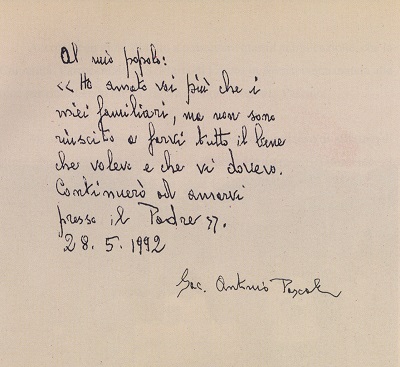 Al mio popolo:
<< Ho amato voi più che i
miei familiari, ma non sono
riuscito a farvi tutto il bene
che volevo e che vi dovevo.
Continuerò ad amarvi
presso il Padre >>.
28.5.1992
Sac. Antonio Pascale